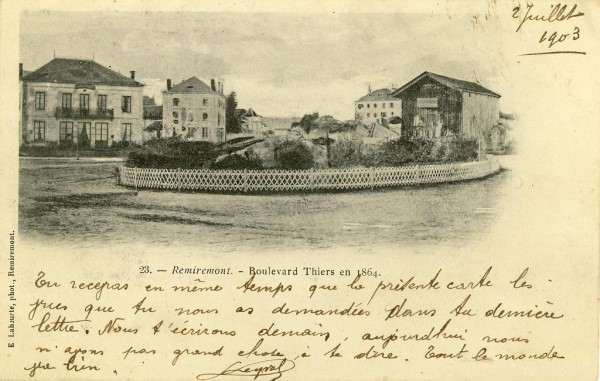 2 Juillet
1903
23. — Remiremont. - Boulevard Thiers en 1864.
E Lahaurte, phot., Remiremont.
Tu recevras en même temps que la présente carte les
vues que tu nous as demandées dans ta dernière
lettre. Nous t'écrirons demain, aujourd'hui nous
n'avons pas grand chose à te dire. Tout le monde
va bien.